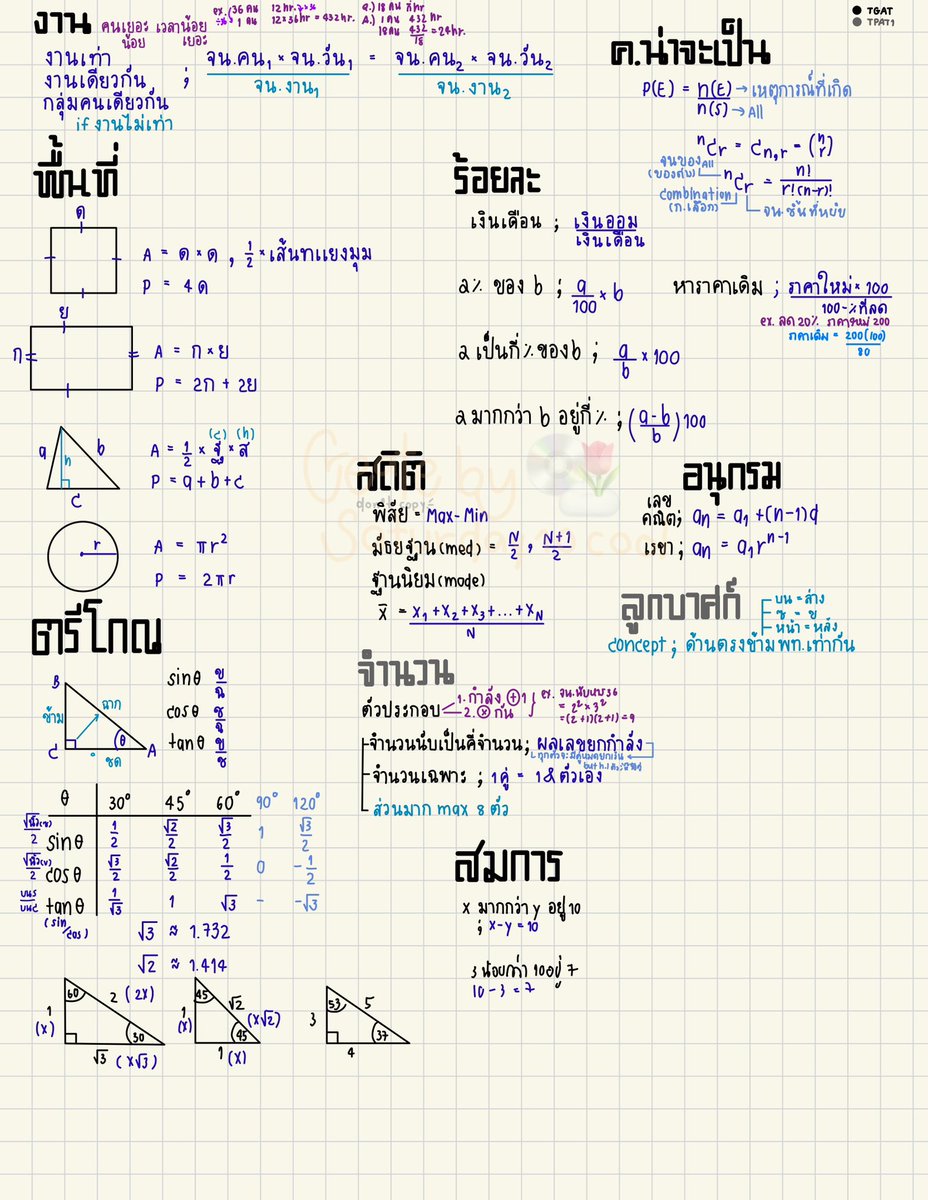 TGAT
TPAT1
งาน
คนเยอะ เวลาน้อย
น้อย เยอะ
ex. 36 คน 12 hr.
1 คน 12×36hr = 432 hr.
Q.) 18 คน กี่hr
A.) 1 คน 432 hr
18 คน 432/18 = 24hr.
งานเท่า
งานเดียวกัน ;
กลุ่มคนเดียวกัน
if งานไม่เท่า
จน.คน₁ × จน.วัน₁ = จน.คน₂ × จน.วัน₂
จน.งาน₁ จน.งาน₂
ค.น่าจะเป็น
P(E) = n(E) → เหตุการณ์ที่เกิด
n(S) → All
nCr = Cn,r = (n r)
nCr = n!
r!(n-r)!
จนของ All
(ของต่าง)
combination
(ก.เลือก)
จน.ชิ้นที่หยิบ
พื้นที่
ด
A = ด × ด , 1/2 × เส้นทแยงมุม
P = 4ด
ย
ก
A = ก × ย
P = 2ก + 2ย
a b h c
(c) (h)
A = 1/2 × ฐ × ส
P = a + b + c
r
A = πr²
P = 2πr
ร้อยละ
เงินเดือน ; เงินออม
เงินเดือน
a% ของ b ; a/100 × b
หาราคาเดิม ; ราคาใหม่ × 100
100-%ที่ลด
ex. ลด 20% ราคาใหม่ 200
ราคาเดิม = 200(100)
80
a เป็นกี่%ของb ; a/b × 100
a มากกว่า b อยู่กี่% ; (a-b/b)100
สถิติ
พิสัย = Max-Min
มัธยฐาน(med) = N/2 , N+1/2
ฐานนิยม(mode)
x̄ = x₁+x₂+x₃+...+xN
N
อนุกรม
เลขคณิต; an = a₁ + (n-1)d
เรขา ; an = a₁rⁿ⁻¹
ลูกบาศก์
บน = ล่าง
ซ = ข
หน้า = หลัง
concept ; ด้านตรงข้ามพท.เท่ากัน
ตรีโกณ
B
ข้าม ฉาก
C ชิด θ A
sinθ ข/ฉ
cosθ ช/ฉ
tanθ ข/ช
θ 30° 45° 60° 90° 120°
sinθ 1/2 √2/2 √3/2 1 √3/2
cosθ √3/2 √2/2 1/2 0 -1/2
tanθ 1/√3 1 √3 - -√3
(sin/cos)
√3 ≈ 1.732
√2 ≈ 1.414
60 2 (2x) 1 (x) 30 √3 (x√3)
45 √2 (x√2) 1 (x) 45 1 (x)
53 5 3 37 4
จำนวน
ตัวประกอบ
1. กำลัง ⊕ 1
2. ⊗ กัน
ex. จน.นับหาร 36
= 2² × 3²
= (2+1)(2+1) = 9
จำนวนนับเป็นคี่จำนวน ; ผลเลขยกกำลัง
จำนวนเฉพาะ ; 1คู่ = 1 & ตัวเอง
ส่วนมาก max 8 ตัว
สมการ
x มากกว่า y อยู่ 10
; x-y = 10
3 น้อยกว่า 10 อยู่ 7
10 - 3 = 7